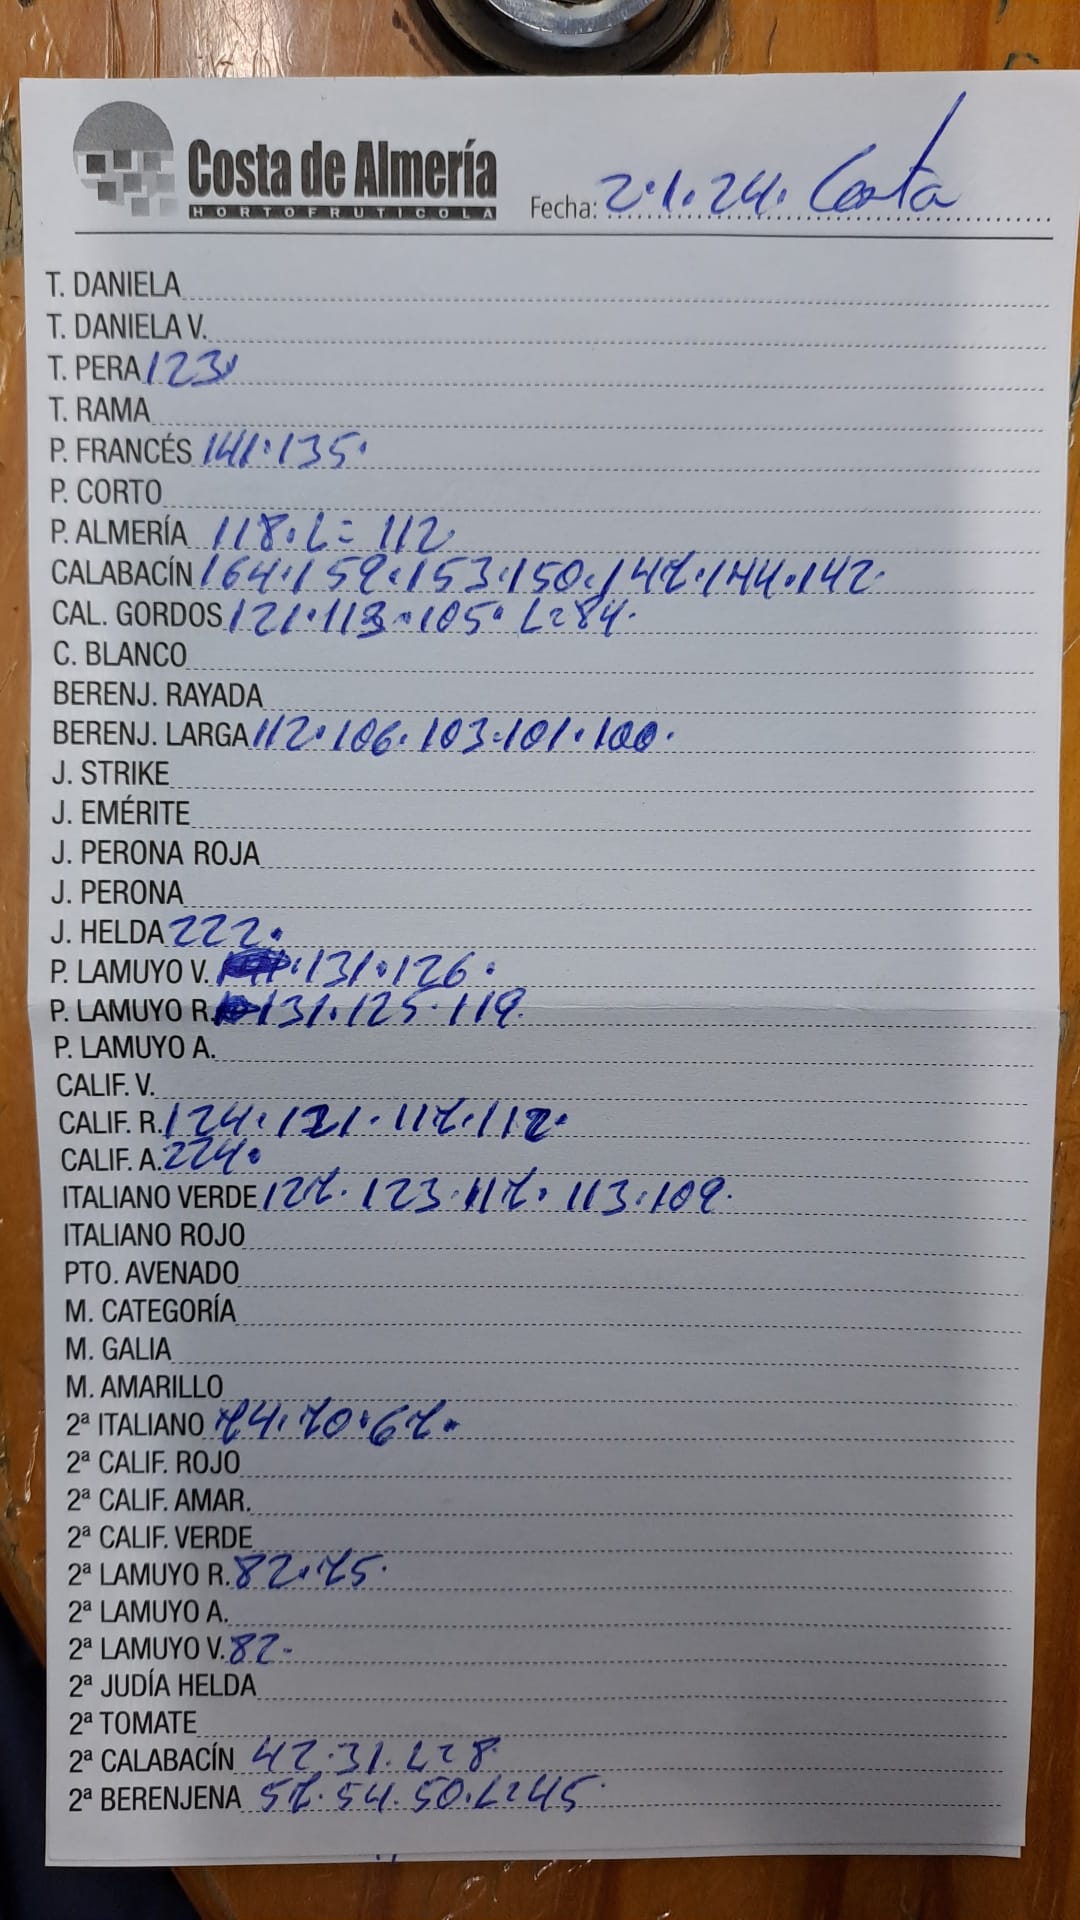 Costa de Almería
HORTOFRUTICOLA
Fecha: 2.1.24. Costa
T. DANIELA
T. DANIELA V.
T. PERA 123.
T. RAMA
P. FRANCÉS 141.135.
P. CORTO
P. ALMERÍA 118.L=112.
CALABACÍN 164.159.153.150.147.144.142.
CAL. GORDOS 121.113.105.L=84.
C. BLANCO
BERENJ. RAYADA
BERENJ. LARGA 112.106.103.101.100.
J. STRIKE
J. EMÉRITE
J. PERONA ROJA
J. PERONA
J. HELDA 222.
P. LAMUYO V. .131.126.
P. LAMUYO R. 131.125.119.
P. LAMUYO A.
CALIF. V.
CALIF. R. 124.121.117.112.
CALIF. A. 224.
ITALIANO VERDE 127.123.117.113.109.
ITALIANO ROJO
PTO. AVENADO
M. CATEGORÍA
M. GALIA
M. AMARILLO
2ª ITALIANO 74.70.67.
2ª CALIF. ROJO
2ª CALIF. AMAR.
2ª CALIF. VERDE
2ª LAMUYO R. 82.75.
2ª LAMUYO A.
2ª LAMUYO V. 82.
2ª JUDÍA HELDA
2ª TOMATE
2ª CALABACÍN 42.31.L=8.
2ª BERENJENA 57.54.50.L=45.